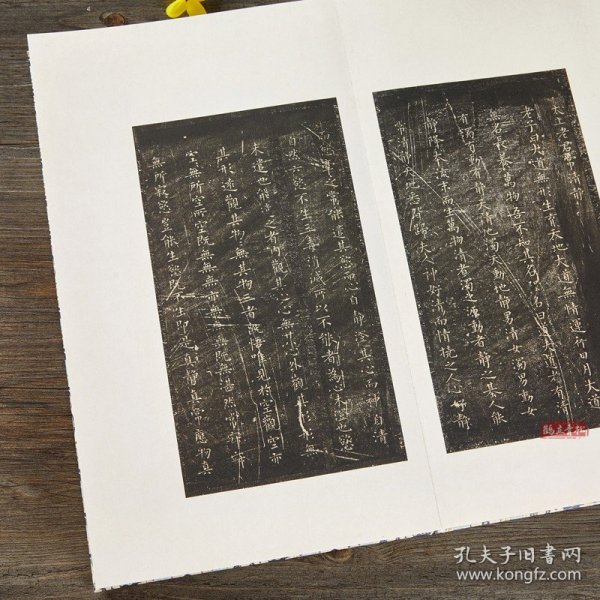 太上老君說常清靜經
老君曰大道無形生育天地大道無情運行日月大道
無名長養萬物吾不知其名強名曰道夫道者有清
有濁有動有靜天清地濁天動地靜男清女濁男動女
靜降本流末而生萬物清者濁之源動者靜之基人能
常清靜天地悉皆歸夫人神好清而情之人心好靜
而慾牽之常能遣其慾而心自靜澄其心而神自清
自然六慾不生三毒消滅所以不能者為心未澄慾
未遣也能遣之者內觀其心心無其心外觀其形形無
其形遠觀其物物無其物三者既悟唯見於空觀空亦
空空無所空所空既無無無亦無無無既無湛然常寂寂
無所寂慾豈能生慾既不生即是真靜真常應物真
孔夫子旧书网
www.kongfz.com